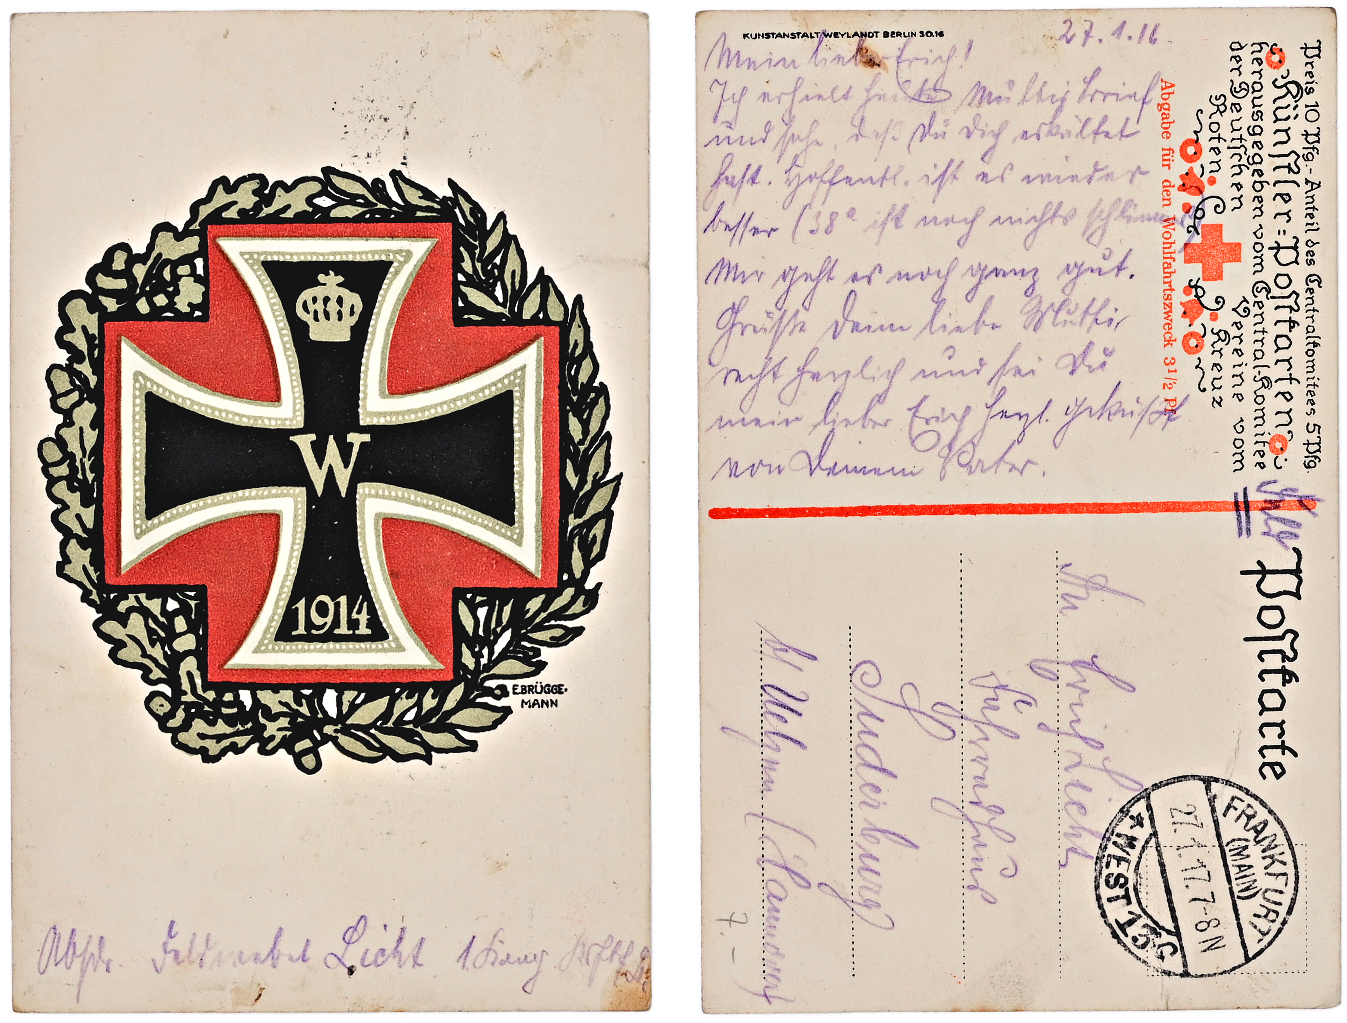 W
1914
E.BRÜGGE-
MANN
Absdr. Feldwebel Licht 1 Komp.
KUNSTANSTALT WEYLANDT BERLIN SO.16
27.1.16.
Mein lieber Erich!
Ich erhielt heute Muttis Brief
und sehe, daß Du Dich erkältet
hast. Hoffentl. ist es wieder
besser (38° ist noch nichts schlimmes)
Mir geht es noch ganz gut.
Grüße Deine liebe Mutti
recht herzlich und sei Du
mein lieber Erich herzl. geküßt
von Deinem Vater.
Preis 10 Pfg.-Anteil des Centralkomitees 5 Pfg.
Künstler=Postkarten
herausgegeben vom Central-Komitee
der Deutschen Vereine vom
Roten Kreuz
Abgabe für den Wohlfahrtszweck 3 1/2 Pf.
Postkarte
FRANKFURT
(MAIN)
27.1.17.7-8N
* WEST 13
An
Erich Licht
Suderburg
b/ Uelzen (Hannover)
7.-